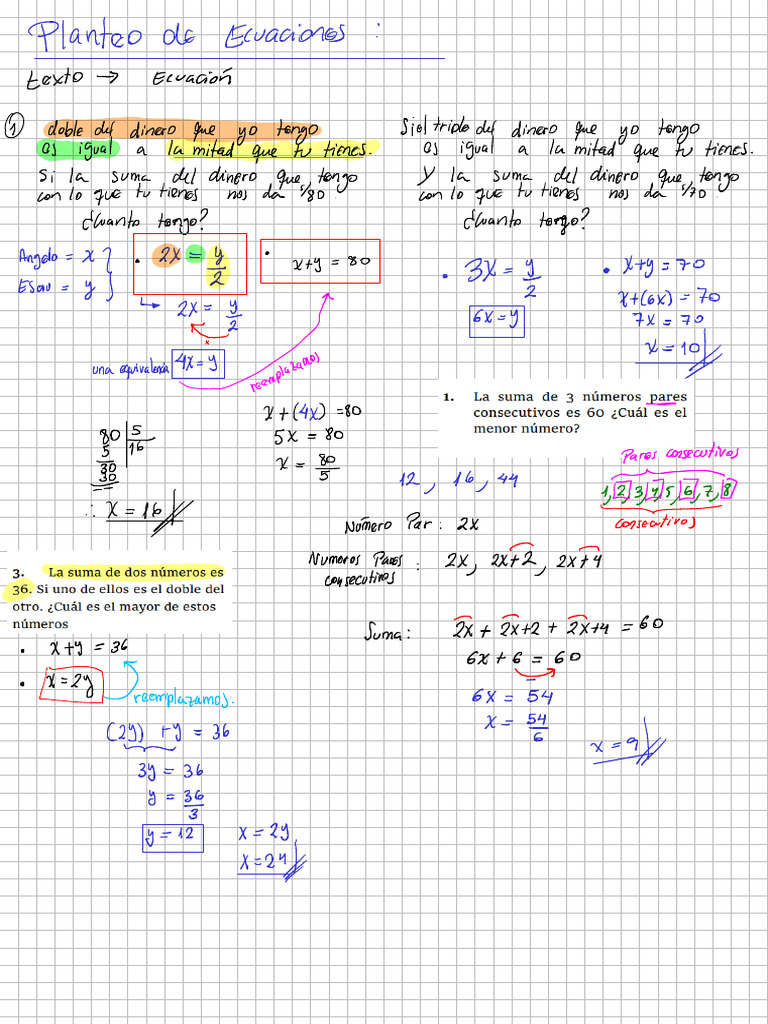 Planteo de Ecuaciones :
texto → Ecuación
① doble del dinero que yo tengo
es igual a la mitad que tu tienes.
Si la suma del dinero que tengo
con lo que tu tienes nos da s/80
¿Cuanto tengo?
Angelo = x
Esau = y
• 2x = y/2
• x+y = 80
2x = y/2
una equivalencia 4x = y
reemplazamos
x + (4x) = 80
5x = 80
x = 80/5
80 5
5 16
30
30
∴ x = 16
Si el triple del dinero que yo tengo
es igual a la mitad que tu tienes.
Y la suma del dinero que tengo
con lo que tu tienes nos da s/70
¿Cuanto tengo?
• 3x = y/2
6x = y
• x+y = 70
x+(6x) = 70
7x = 70
x = 10
1. La suma de 3 números pares
consecutivos es 60 ¿Cuál es el
menor número?
Pares consecutivos
12, 16, 44
1,2,3,4,5,6,7,8
consecutivos
Número Par : 2x
Numeros Pares
consecutivos : 2x, 2x+2, 2x+4
Suma: 2x + 2x+2 + 2x+4 = 60
6x + 6 = 60
6x = 54
x = 54/6
x = 9
3. La suma de dos números es
36. Si uno de ellos es el doble del
otro. ¿Cuál es el mayor de estos
números
• x+y = 36
• x = 2y
reemplazamos.
(2y) + y = 36
3y = 36
y = 36/3
y = 12
x = 2y
x = 24